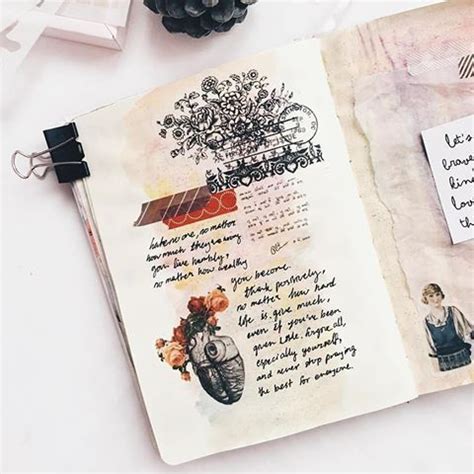 hate no one, no matter
how much they've wrong
you. live humbly,
no matter how wealthy
you become.
think positively,
no matter how hard
life is. give much,
even if you've been
given little. forgive all,
especially yourself,
and never stop praying
the best for everyone.
let's
brave
kin
lovi
th